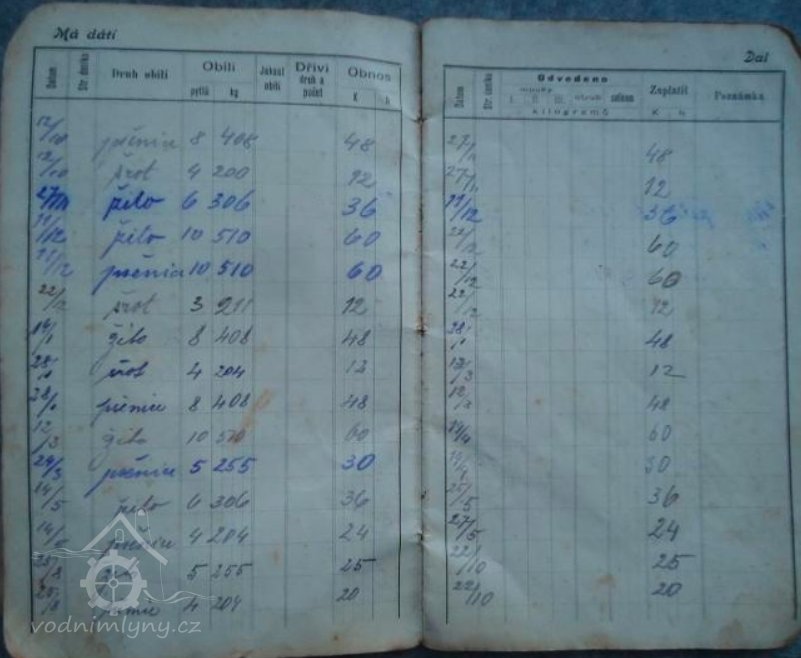 Má dáti
Datum Str. deníku Druh obilí Obilí Jakost obilí Dříví druh a počet Obnos
pytlů kg K h
12/10 pšenice 8 408 48
12/10 šrot 4 200 12
žito 6 306 36
11/12 žito 10 510 60
pšenice 10 510 60
22/12 šrot 3 12
14/1 žito 8 408 48
28/1 šrot 4 204 12
28/1 pšenice 8 408 48
12/3 žito 10 510 60
24/3 pšenice 5 255 30
14/5 žito 6 306 36
pšenice 4 204 24
25/8 žito 5 255 25
25/8 pšenice 4 204 20
vodnimlyny.cz
Dal
Datum Str. deníku Odvedeno Zaplatil Poznámka
mouky otrub
I. II. III.
kilogramů K h
27/11 48
27/11 12
11/12 36
22/12 60
22/12 60
22/12 12
28/1 48
12/3 12
12/3 48
60
30
25/5 36
27/5 24
22/10 25
22/10 20